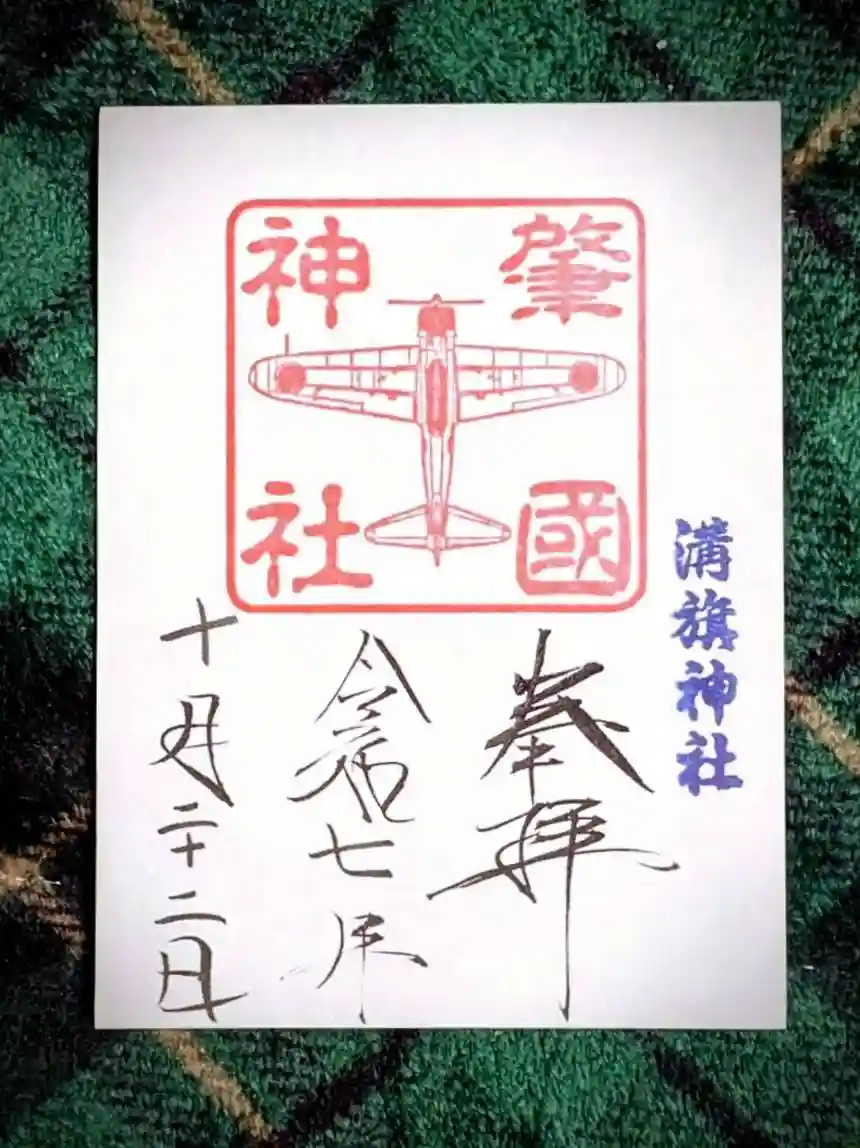 溝旗神社
肇國
神社
奉拝
令和七年
十月二十二日